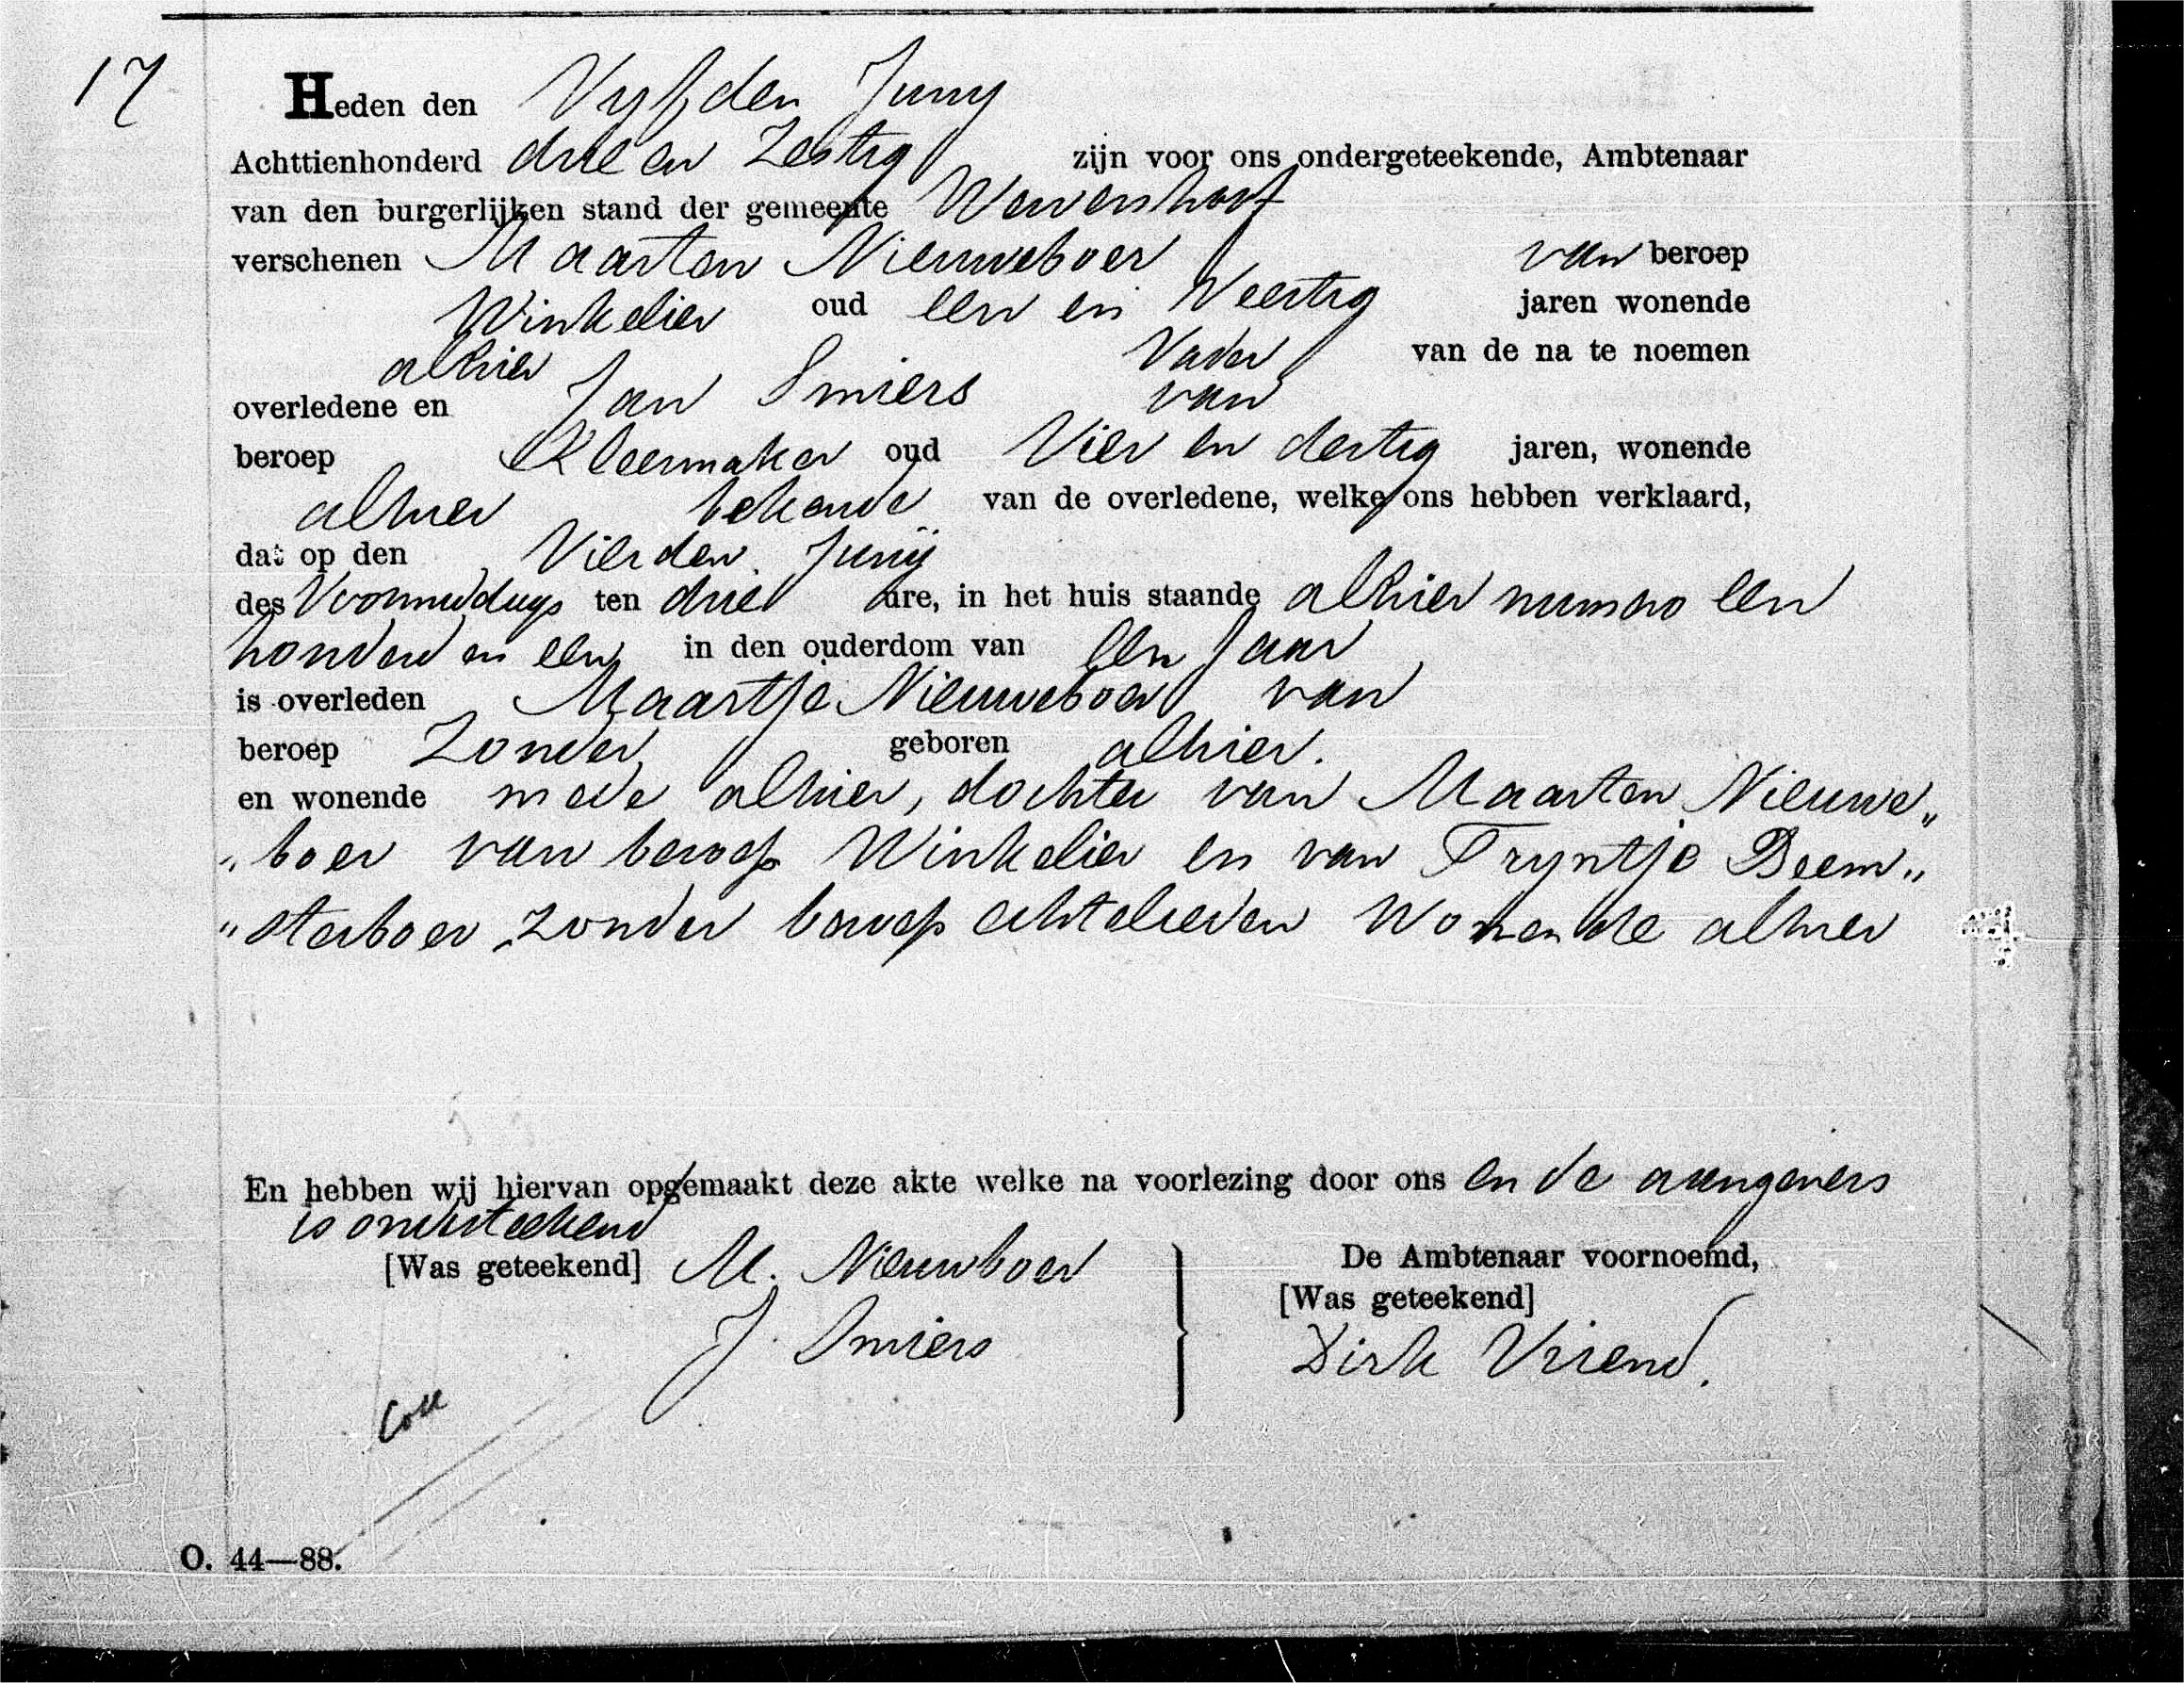 17
Heden den Vyfden Juny
Achttienhonderd drie en Zestig zijn voor ons ondergeteekende, Ambtenaar
van den burgerlijken stand der gemeente Wervershoof
verschenen Maarten Nieuweboer van beroep
Winkelier oud een en Veertig jaren wonende
alhier Vader van de na te noemen
overledene en Jan Smiers van
beroep Kleermaker oud Vier en dertig jaren, wonende
alhier bekende van de overledene, welke ons hebben verklaard,
dat op den Vierden Junij
des Voormiddags ten drie ure, in het huis staande alhier numero een
honderd en een in den ouderdom van een Jaar
is overleden Maartje Nieuweboer van
beroep Zonder geboren alhier.
en wonende mede alhier, dochter van Maarten Nieuwe„
„boer van beroep Winkelier en van Tryntje Beem„
„sterboer zonder beroep echtelieden Wonende alhier
En hebben wij hiervan opgemaakt deze akte welke na voorlezing door ons en de aangevers
is onderteekend
[Was geteekend] M. Nieuwboer De Ambtenaar voornoemd,
[Was geteekend]
J. Smiers Dirk Vriend.
Coll
O. 44—88.